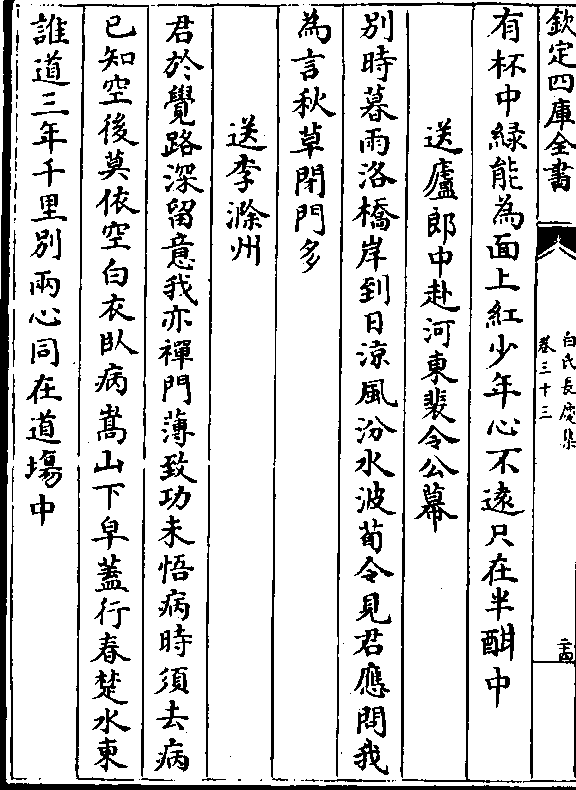 欽定四庫全書
白氏長慶集
卷三十三
有杯中緑能為面上紅少年心不遠只在半酣中
送廬郎中赴河東裴令公幕
别時暮雨洛橋岸到日凉風汾水波荀令見君應問我
為言秋草閉門多
送李滁州
君於覺路深留意我亦禪門薄致功未悟病時須去病
已知空後莫依空白衣臥病嵩山下皁蓋行春楚水東
誰道三年千里别兩心同在道場中